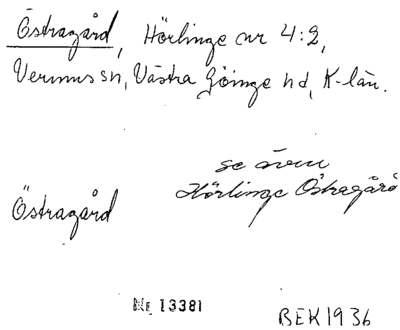 Östragård, Hörlinge nr 4:2,
Verums sn, Västra Göinge hd, K-län.
se även
Hörlinge Östragård
Östragård
Nr 13381
BEK1936